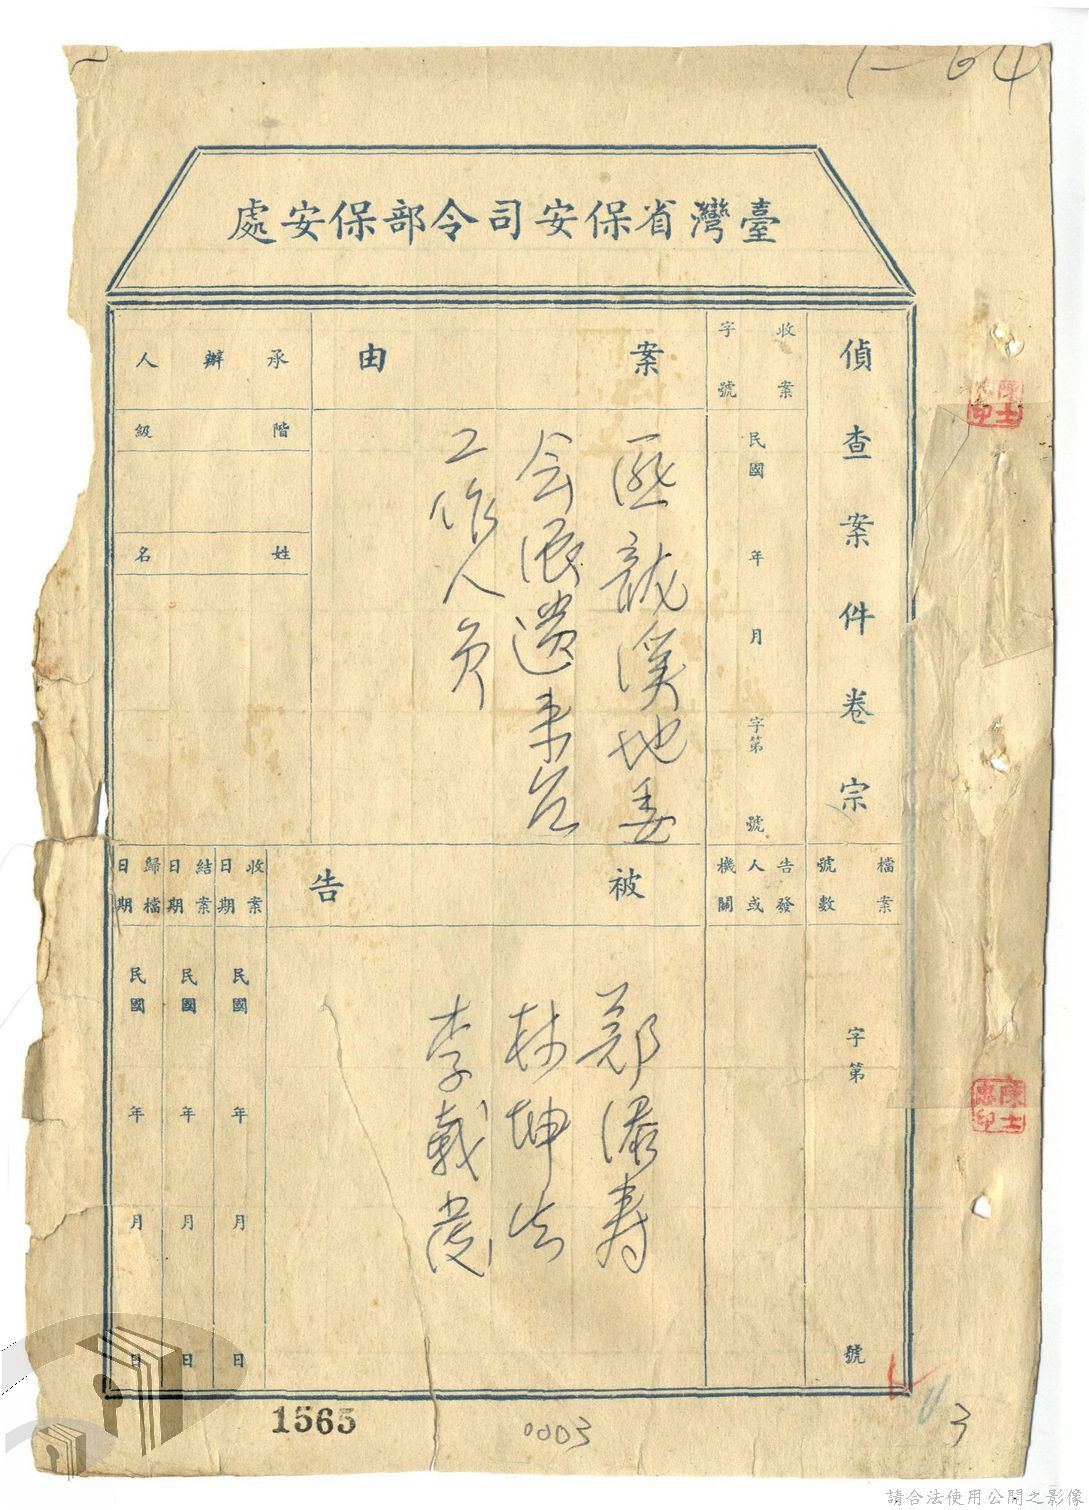 1-64
臺灣省保安司令部保安處
偵查案件卷宗
收案
字號
民國 年 月 字第 號
案由
匪龍溪地委
会派遣来台
工作人員
承辦人
階級
姓名
檔案
號數
字第 號
告發
人或
機關
被告
鄭添寿
林坤
李載
收案
日期
民國 年 月 日
結案
日期
民國 年 月 日
歸檔
日期
民國 年 月 日
陳士忠印
陳士忠印
1565
0003
3
請合法使用公開之影像